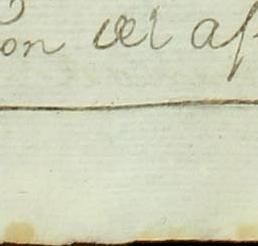 on vel af